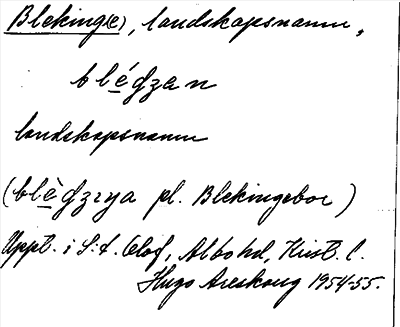 Bleking(e), landskapsnamn,
blédzan
landskapsnamn
(blèdzɪŋa pl. Blekingebor)
Uppt. i S:t Olof, Albo hd, Krist. l.
Hugo Areskoug 1954-55.